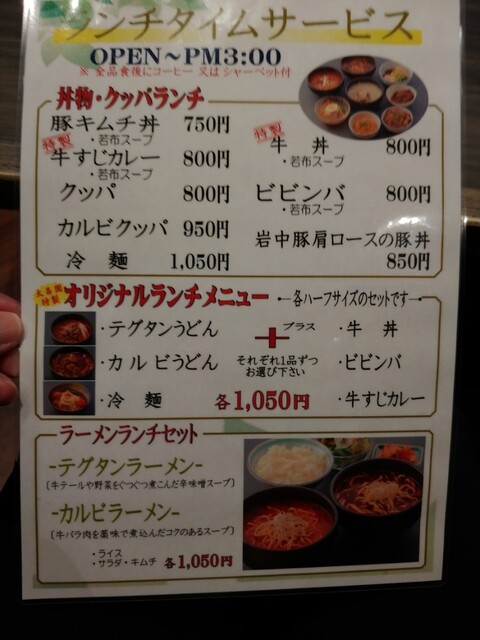 ランチタイムサービス
OPEN～PM3:00
※ 全品食後にコーヒー 又は シャーベット付
丼物・クッパランチ
豚キムチ丼 750円
・若布スープ
特製
牛すじカレー 800円
・若布スープ
クッパ 800円
カルビクッパ 950円
冷 麺 1,050円
特製
牛 丼 800円
・若布スープ
ビビンバ 800円
・若布スープ
岩中豚肩ロースの豚丼
850円
特製
オリジナルランチメニュー ー各ハーフサイズのセットですー
・テグタンうどん
・カルビうどん
・冷 麺
＋プラス
それぞれ1品ずつ
お選び下さい
各1,050円
・牛 丼
・ビビンバ
・牛すじカレー
ラーメンランチセット
-テグタンラーメン-
(牛テールや野菜をぐつぐつ煮こんだ辛味噌スープ)
-カルビラーメン-
(牛バラ肉を薬味で煮込んだコクのあるスープ)
・ライス
・サラダ・キムチ 各1,050円